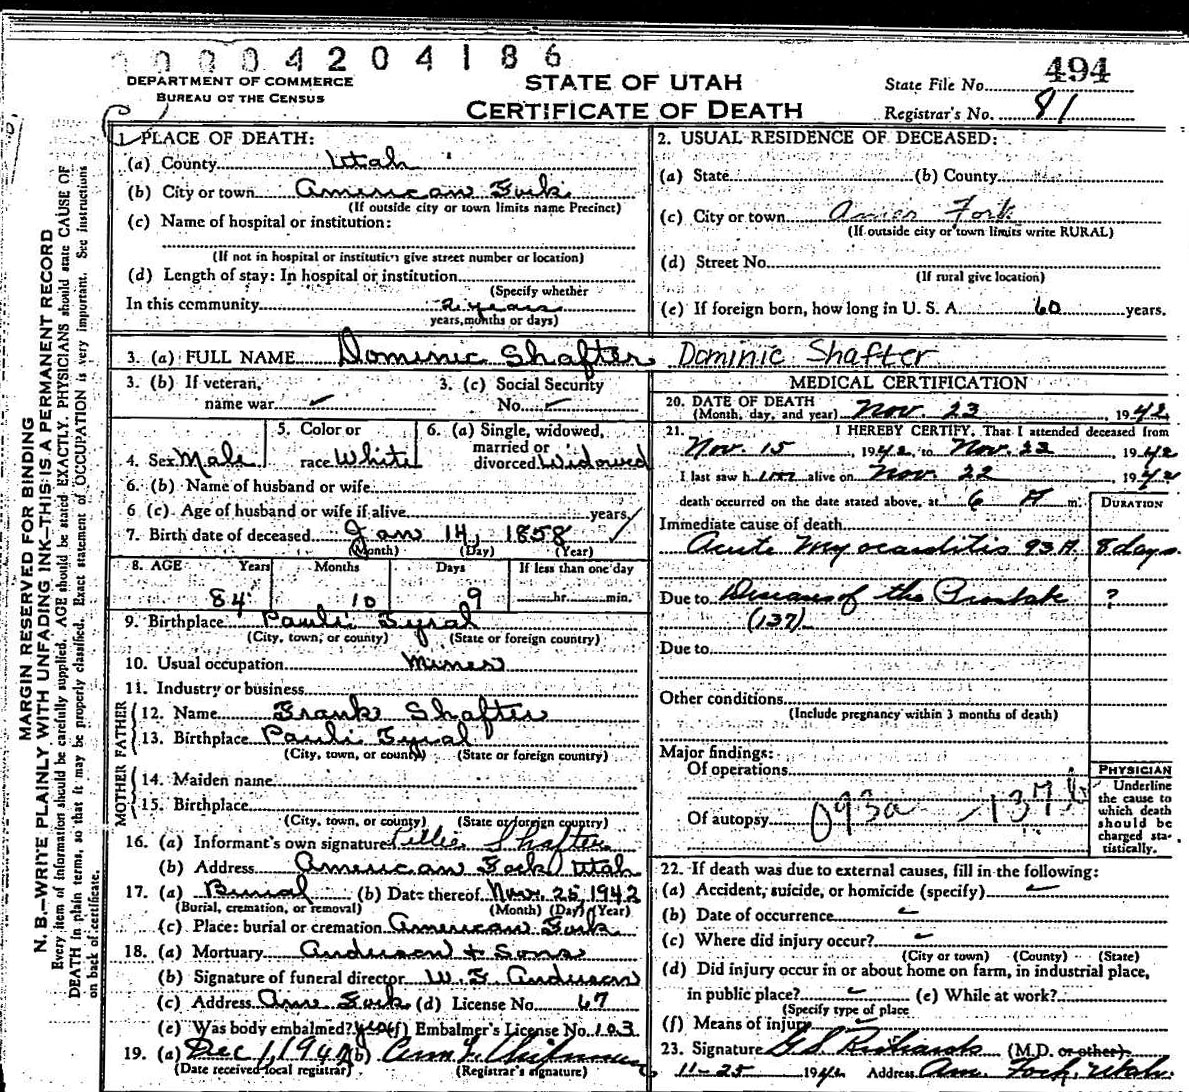 0 0 0 0 4 2 0 4 1 8 6
DEPARTMENT OF COMMERCE
BUREAU OF THE CENSUS
STATE OF UTAH
CERTIFICATE OF DEATH
State File No. 494
Registrar's No. 81
MARGIN RESERVED FOR BINDING
N. B.—WRITE PLAINLY WITH UNFADING INK—THIS IS A PERMANENT RECORD
Every item of information should be carefully supplied. AGE should be stated EXACTLY. PHYSICIANS should state CAUSE OF
DEATH in plain terms, so that it may be properly classified. Exact statement of OCCUPATION is very important. See instructions
on back of certificate.
1. PLACE OF DEATH:
(a) County Utah
(b) City or town American Fork
(If outside city or town limits name Precinct)
(c) Name of hospital or institution:
(If not in hospital or institution give street number or location)
(d) Length of stay: In hospital or institution
(Specify whether
In this community 2 years
years, months or days)
2. USUAL RESIDENCE OF DECEASED:
(a) State (b) County
(c) City or town Amer Fork
(If outside city or town limits write RURAL)
(d) Street No.
(If rural give location)
(e) If foreign born, how long in U. S. A. 60 years.
3. (a) FULL NAME Dominic Shafter Dominic Shafter
3. (b) If veteran,
name war ✓
3. (c) Social Security
No. ✓
4. Sex Male
5. Color or
race White
6. (a) Single, widowed,
married or
divorced Widowed
6. (b) Name of husband or wife
6 (c). Age of husband or wife if alive years
7. Birth date of deceased Jan 14, 1858
(Month) (Day) (Year)
8. AGE Years Months Days If less than one day
84 10 9 hr. min.
9. Birthplace Pauli Tyral
(City, town, or county) (State or foreign country)
10. Usual occupation Miner
11. Industry or business
FATHER
12. Name Frank Shafter
13. Birthplace Pauli Tyral
(City, town, or county) (State or foreign country)
MOTHER
14. Maiden name
15. Birthplace
(City, town, or county) (State or foreign country)
16. (a) Informant's own signature Shafter
(b) Address American Fork Utah
17. (a) Burial (b) Date thereof Nov. 25, 1942
(Burial, cremation, or removal) (Month) (Day) (Year)
(c) Place: burial or cremation American Fork
18. (a) Mortuary Anderson & Sons
(b) Signature of funeral director W. E. Anderson
(c) Address Am Fork (d) License No. 67
(e) Was body embalmed? yes (f) Embalmer's License No. 103
19. (a) Dec 1, 1942 (b)
(Date received local registrar) (Registrar's signature)
MEDICAL CERTIFICATION
20. DATE OF DEATH
(Month, day, and year) Nov. 23, 1942
21. I HEREBY CERTIFY, That I attended deceased from
Nov. 15, 1942, to Nov. 23, 1942
I last saw him alive on Nov. 22 1942
death occurred on the date stated above, at 6 A m.
DURATION
Immediate cause of death
Acute Myocarditis 93A 8 days.
Due to Diseases of the Prostate ?
(137)
Due to
Other conditions
(Include pregnancy within 3 months of death)
Major findings:
Of operations
Of autopsy 093a 137b
PHYSICIAN
Underline
the cause to
which death
should be
charged sta-
tistically.
22. If death was due to external causes, fill in the following:
(a) Accident, suicide, or homicide (specify) ✓
(b) Date of occurrence ✓
(c) Where did injury occur? ✓
(City or town) (County) (State)
(d) Did injury occur in or about home on farm, in industrial place,
in public place? ✓ (e) While at work?
(Specify type of place
(f) Means of injury ✓
23. Signature G S Richards (M.D. or other)
11-25 1942 Address Am. Fork, Utah.